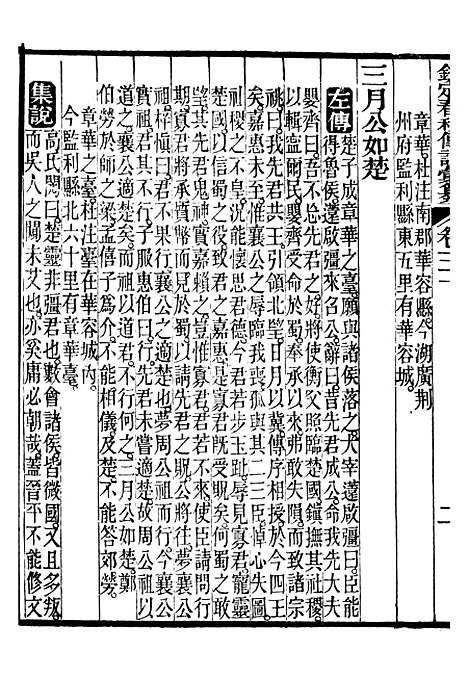 欽定春秋傳說彙纂 卷三十一 二
章華杜注南郡華容縣今湖廣荆
州府監利縣東五里有華容城
三月公如楚
左傳 楚子成章華之臺願與諸侯落之大宰薳啟彊曰臣能
得魯侯薳啟彊來召公辭曰昔先君成公命我先大夫
嬰齊曰吾不忘先君之好將使衡父照臨楚國鎮撫其社稷
以輯寧爾民嬰齊受命於蜀奉承以來弗敢失隕而致諸宗
祧曰我先君共王引領北望日月以冀傳序相授於今四王
矣嘉惠未至唯襄公之辱臨我喪孤與其二三臣悼心失圖
社稷之不皇況能懷思君德今君若步玉趾辱見寡君寵靈
楚國以信蜀之役致君之嘉惠是寡君既受貺矣何蜀之敢
望其先君鬼神實嘉賴之豈惟寡君君若不來使臣請問行
期寡君將承質幣而見於蜀以請先君之貺公將往夢襄公
祖梓愼曰君不果行襄公之適楚也夢周公祖而行今襄公
實祖君其不行子服惠伯曰行先君未嘗適楚故周公祖以
道之襄公適楚矣而祖以道君不行何之三月公如楚鄭
伯勞於師之梁孟僖子爲介不能相儀及楚不能答郊勞
章華之臺杜注臺在華容城內
今監利縣北六十里有章華臺
集說 高氏閌曰楚靈非彊君也數會諸侯皆微國又且多叛
而吳人之鬭未艾也亦奚庸必朝哉蓋晉平不能修文